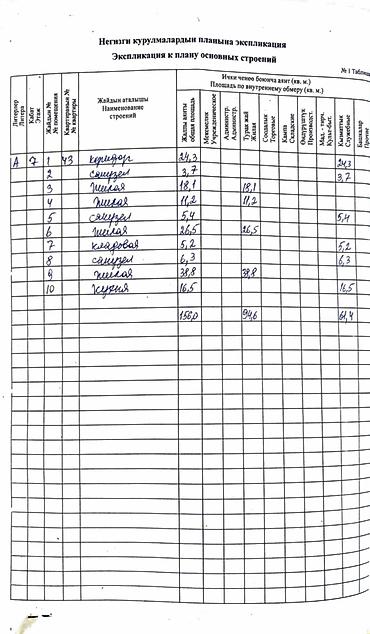 Негизги курулмалардын планына экспликация
Экспликация к плану основных строений
№ 1 Таблица
Литерлер Литера
Кабат Этаж
Жайдын № № помещения
Квартиранын № № квартиры
Жайдын аталышы Наименование строений
Ички ченөө боюнча аянт (кв. м.)
Площадь по внутреннему обмеру (кв. м.)
Жалпы аянты общая площадь
Мекемелик Учрежденческие
Админстр. Администр.
Турак жай Жилая
Соодалык Торговые
Кампа Складские
Өндүрүштүк Производст.
Мад. - тирч. Культ-быт.
Кызматтык Служебные
Башкалар Прочие
А 7 1 43 коридор 24,3 24,3
2 санузел 3,7 3,7
3 жилая 18,1 18,1
4 жилая 11,2 11,2
5 санузел 5,4 5,4
6 жилая 26,5 26,5
7 кладовая 5,2 5,2
8 санузел 6,3 6,3
9 жилая 38,8 38,8
10 кухня 16,5 16,5
156,0 94,6 61,4